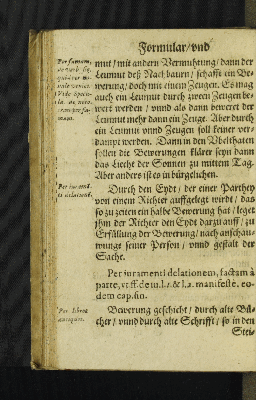 Formular/ vnd
mut/ mit andern Vermuhtung/ dann der
Leumut deß Nachbaurn/ schafft ein Be-
werung/ doch mit einem Zeugen. Es mag
auch ein Leumut durch zween Zeugen be-
wert werden/ vnnd als dann beweret der
Leumut mehr dann ein Zeuge. Aber durch
ein Leumut vnnd Zeugen soll keiner ver-
dampt werden. Dann in den Vbelthaten
sollen die Bewerungen klärer seyn dann
das Liecht der Sonnen zu mittem Tag.
Aber anders ist es in bürgelichen.
Durch den Eydt/ der einer Parthey
von einem Richter auffgelegt wirdt/ das
so zu zeiten ein halbe Bewerung hat/ leget
jhm der Richter den Eydt darzu auff/ zu
Erfüllung der Bewerung/ nach anschau-
wunge seiner Person/ vnnd gestalt der
Sache.
Per iuramenti delationem, factam à
parte, vt ff. de iu. l. & l. manifestè. eo-
dem cap. fin.
Bewerung geschicht/ durch alte Bü-
cher/ vnnd durch alte Schrifft/ so in den
Per famam,
Per libros
antiquos.